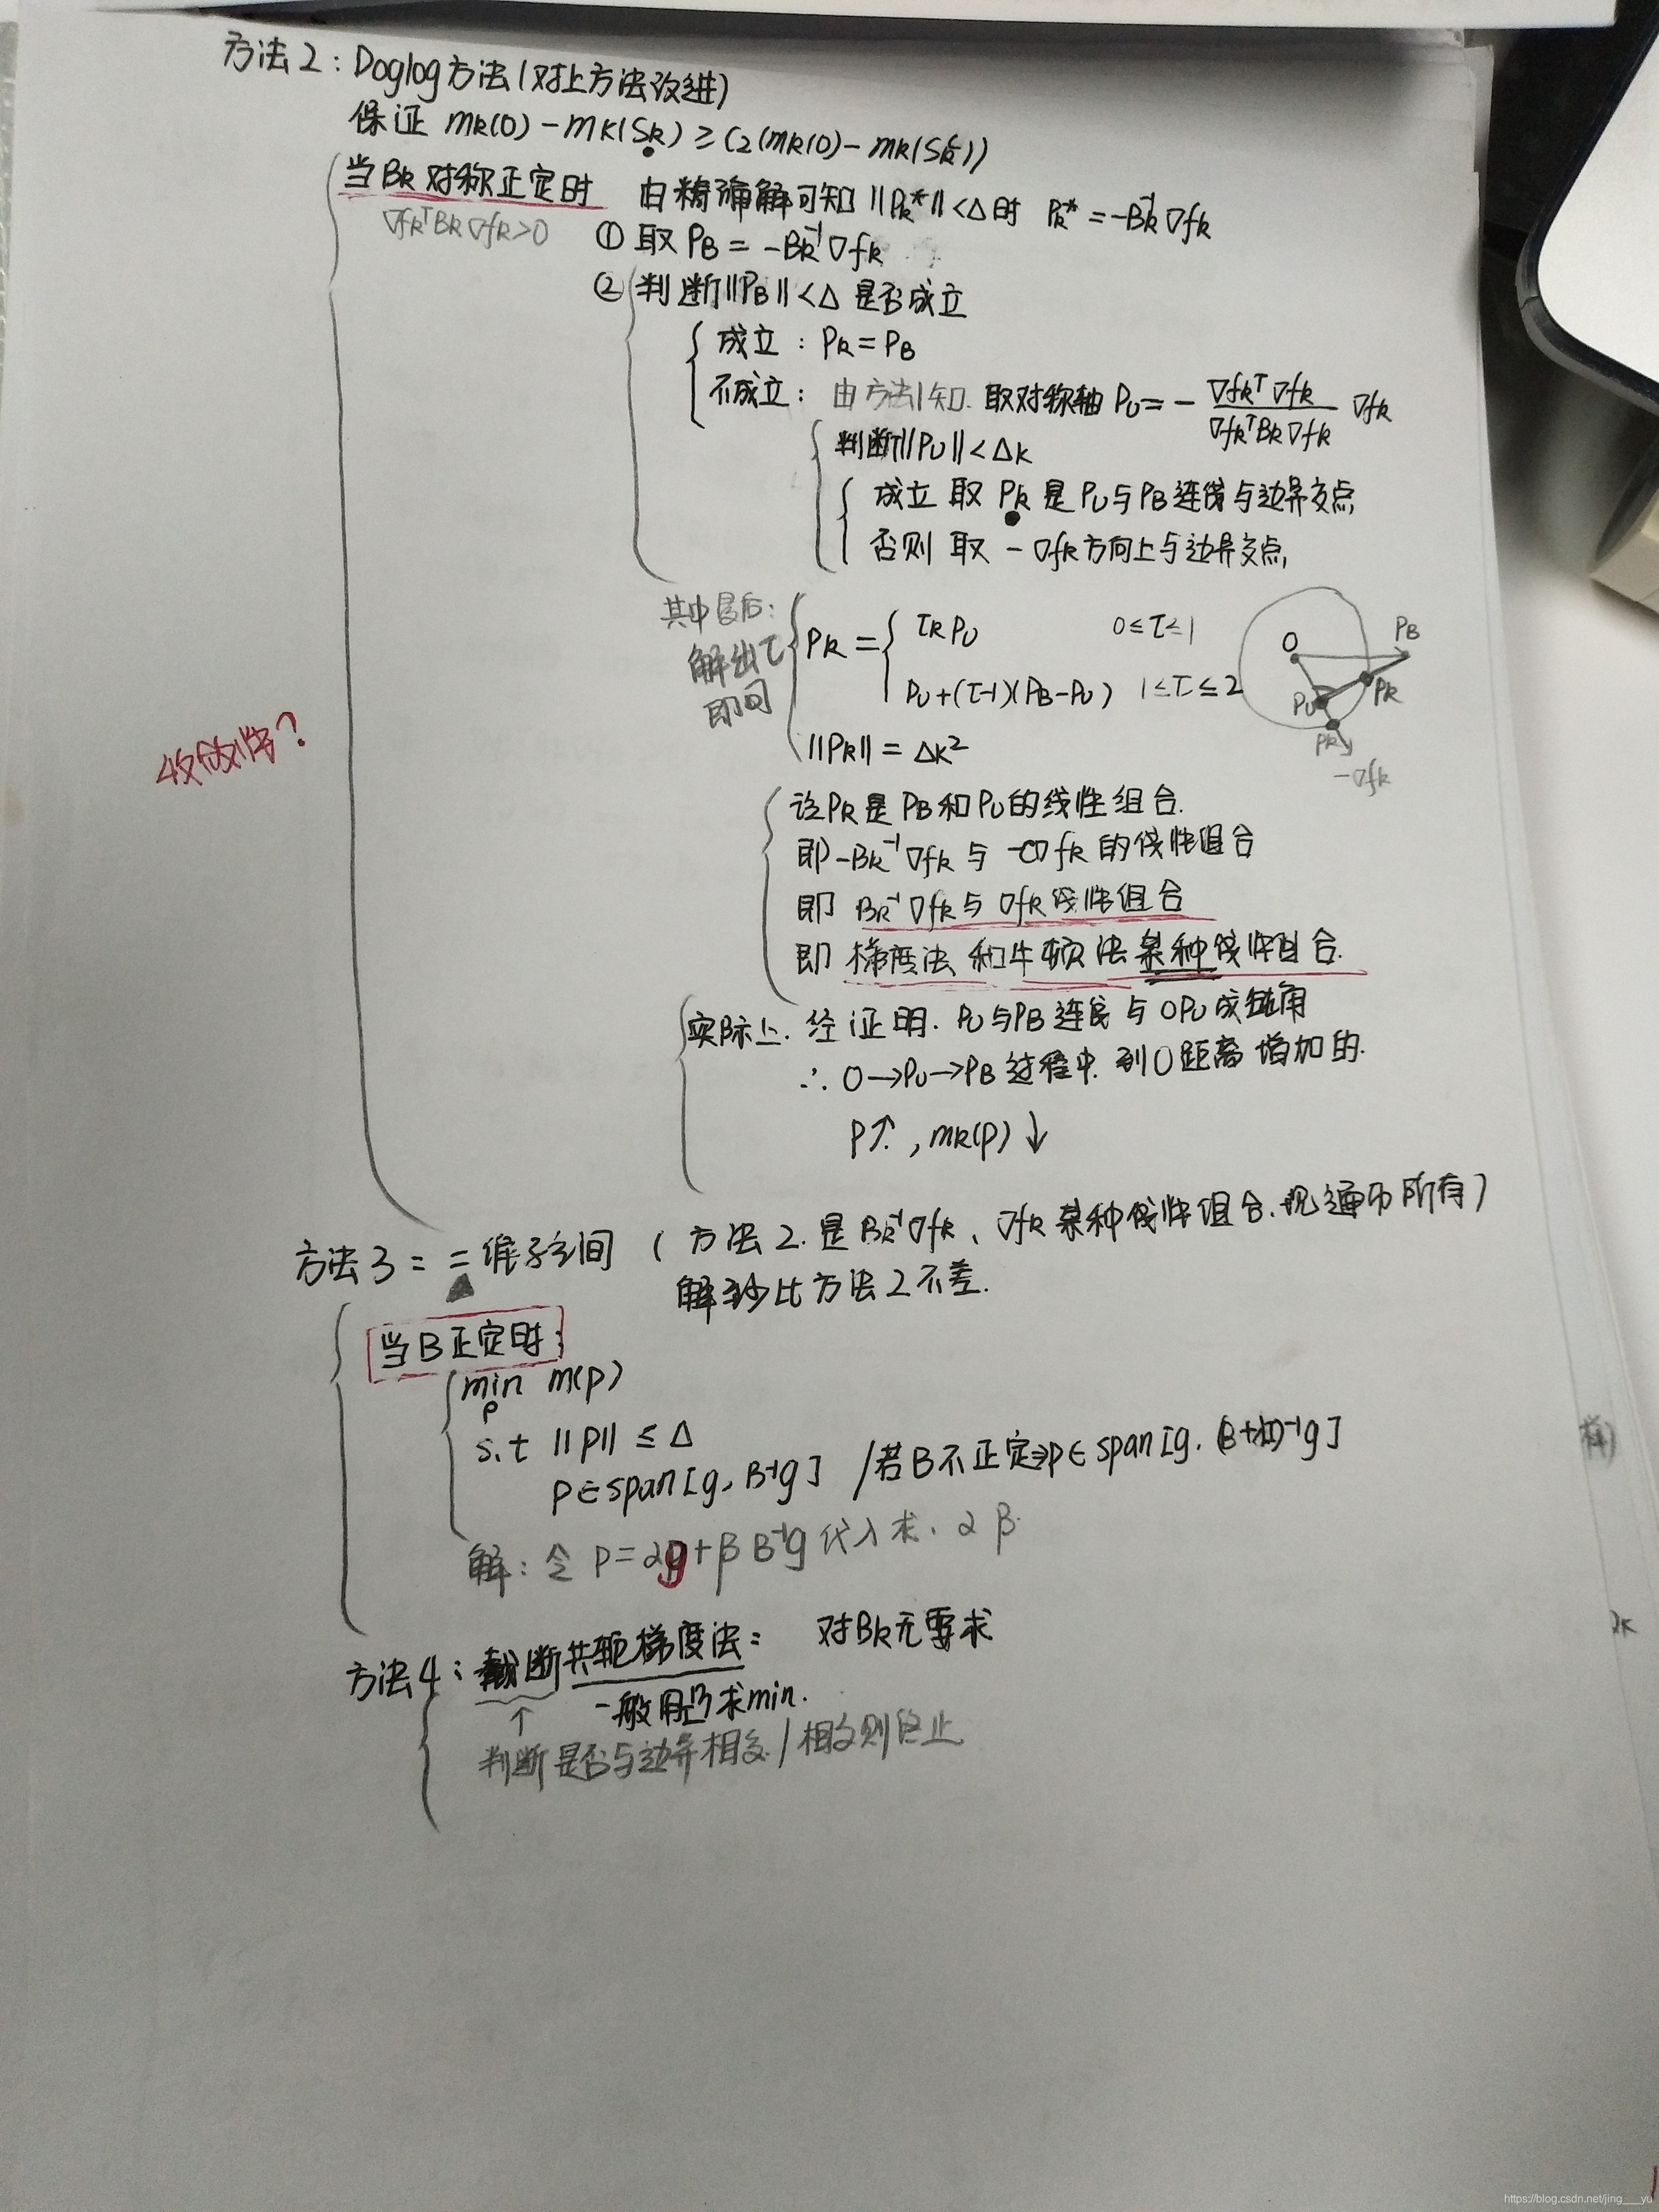 方法2：Doglog方法(对上方法改进)
保证 mk(0)-mk(Sk) ≥ C2(mk(0)-mk(Skᶜ))
当Bk对称正定时 由精确解可知 ||Pk*||<Δ时 Pk*=-Bk⁻¹∇fk
∇fkᵀBk∇fk>0
① 取 PB = -Bk⁻¹∇fk
② 判断||PB||<Δ 是否成立
成立：Pk=PB
不成立：由方法1知. 取对称轴 PU = - ∇fkᵀ∇fk / ∇fkᵀBk∇fk ∇fk
判断||PU||<Δk
成立 取 Pk 是 PU与PB连线与边界交点
否则 取 -∇fk方向上与边界交点
其中最后：
解出τ
即可
Pk = { τkPU 0≤τ≤1
PU+(τ-1)(PB-PU) 1≤τ≤2
||Pk|| = Δk²
O PB PU Pk Pk -∇fk
收敛性？
该Pk是PB和PU的线性组合.
即 -Bk⁻¹∇fk 与 -C∇fk 的线性组合
即 Bk⁻¹∇fk与∇fk线性组合
即 梯度法和牛顿法某种线性组合.
实际上. 经证明. PU与PB连线与OPU成钝角
∴ O→PU→PB过程中. 到O距离增加的.
P↑, mk(p)↓
方法3 = 二维子空间 ( 方法2.是Bk⁻¹∇fk、∇fk某种线性组合.现遍历所有)
解至少比方法2不差.
当B正定时：
min m(p)
p
s.t ||p|| ≤ Δ
p∈span[g, B⁻¹g] /若B不正定⇒p∈span[g, (B+λI)⁻¹g]
解：令 P=αg+βB⁻¹g代入求. α β.
方法4：截断共轭梯度法： 对Bk无要求
一般用即求min.
↑
判断是否与边界相交/相交则终止
样)
https://blog.csdn.net/jing___yu